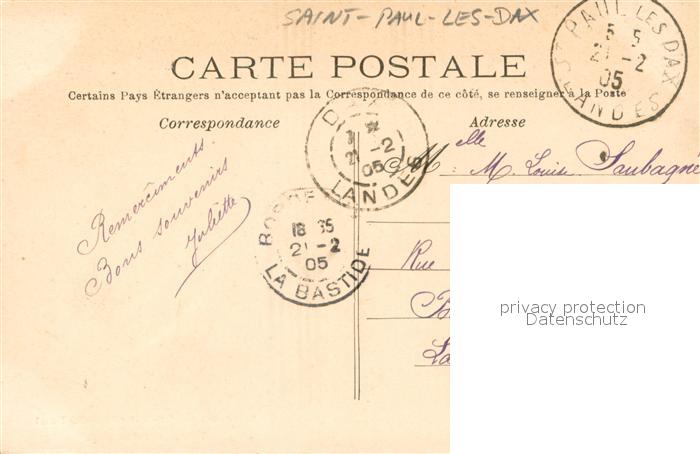 SAINT-PAUL-LES-DAX
ST PAUL LES DAX
5 5
21 -2
05
LANDES
CARTE POSTALE
Certains Pays Étrangers n'acceptant pas la Correspondance de ce côté, se renseigner à la Poste
Correspondance
Adresse
21 -2
05
LANDES
Melle M. Louise Saubagné
Remerciments.
Bons souvenirs
Juliette
18 35
21 -2
05
LA BASTIDE
Rue
privacy protection
Datenschutz